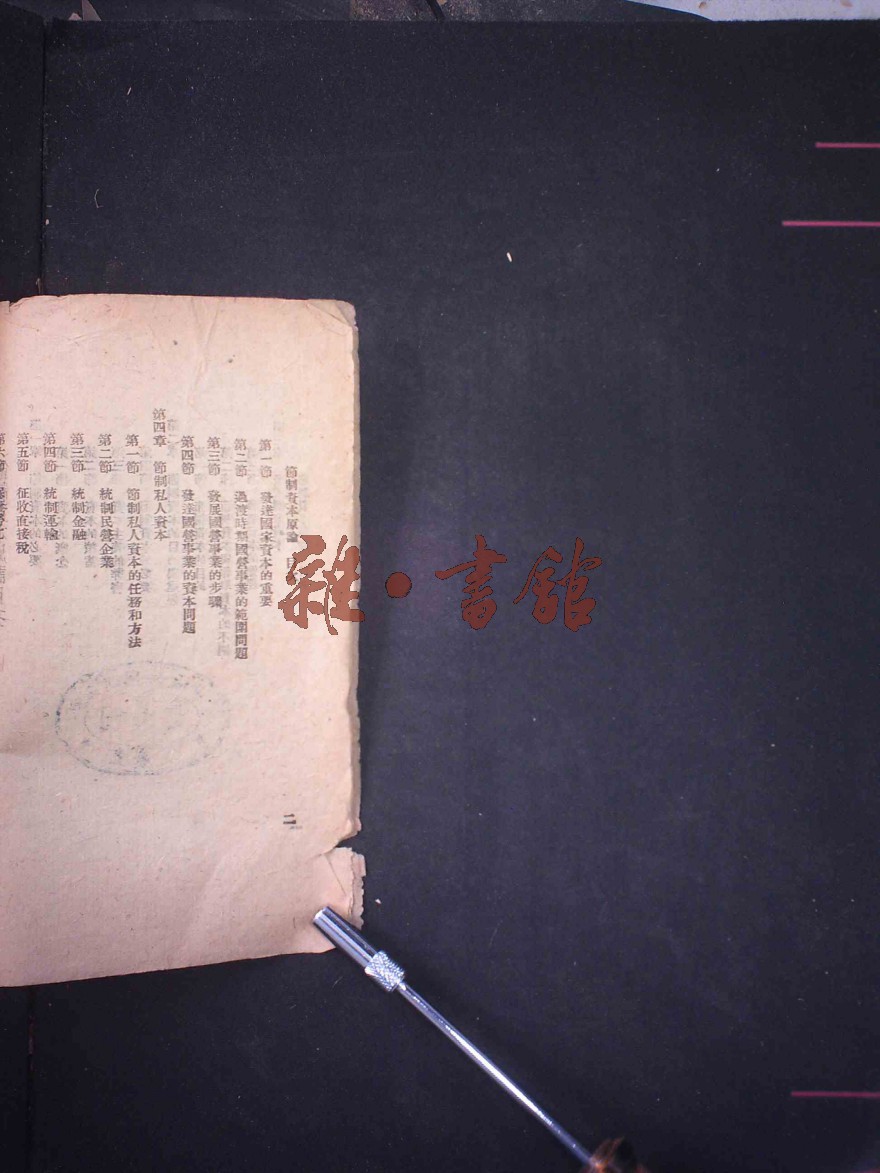 節制資本原論 目
第一節 發達國家資本的重要
第二節 過渡時期國營事業的範圍問題
第三節 發展國營事業的步驟
第四節 發達國營事業的資本問題
第四章 節制私人資本
第一節 節制私人資本的任務和方法
第二節 統制民營企業
第三節 統制金融
第四節 統制運輸
第五節 征收直接稅
第六節
二
雜·書館